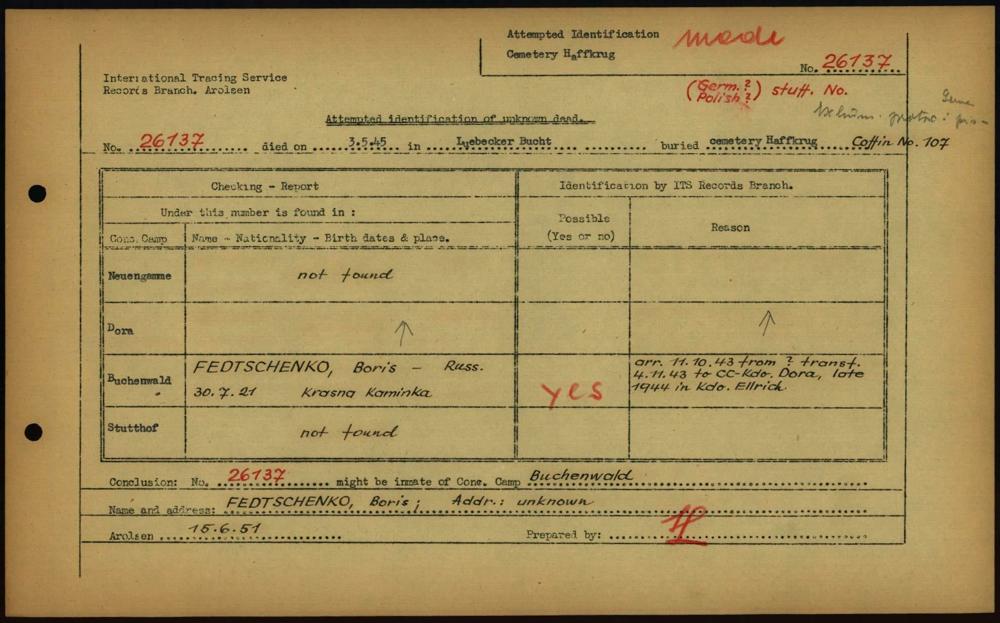 Attempted Identification made
Cemetery Haffkrug
No. 26137
International Tracing Service
Records Branch. Arolsen
(Germ. ? Polish ?) stuff. No.
Attempted identification of unknown dead.
No. 26137 died on 3.5.45 in Luebecker Bucht buried cemetery Haffkrug Coffin No. 107
Checking - Report
Identification by ITS Records Branch.
Under this number is found in :
Possible
(Yes or no)
Reason
Conc. Camp
Name - Nationality - Birth dates & place.
Neuengamme not found
Dora ↑ ↑
Buchenwald
FEDTSCHENKO, Boris - Russ.
30.7.21 Krasna Kaminka
yes
arr. 11.10.43 from ? transf.
4.11.43 to CC-Kdo. Dora, late
1944 in Kdo. Ellrich.
Stutthof not found
Conclusion: No. 26137 might be inmate of Conc. Camp Buchenwald
Name and address: FEDTSCHENKO, Boris; Addr.: unknown
Arolsen 15.6.51 Prepared by: